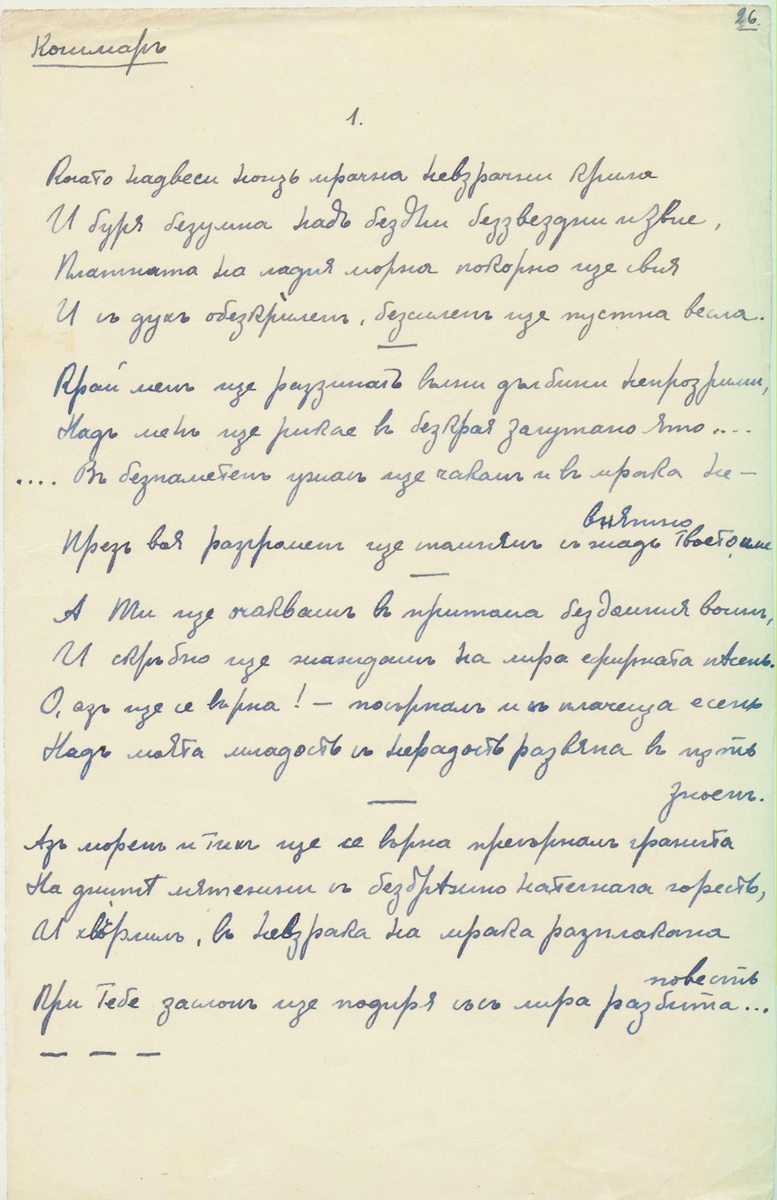 26.
Кошмаръ
1.
Когато надвеси нощь мрачна невзрачни крила
И буря безумна надъ бездни беззвездни извие,
Платната на ладия морна покорно ще свия
И съ духъ обезкриленъ, безсиленъ ще пустна весла.
Край менъ ще раззинатъ вълни дълбини непрозрими,
Надъ менъ ще рикае въ безкрая
.... Въ безпаметенъ ужасъ ще чакамъ и въ мрака не—
внятно
Презъ воя разгроменъ ще съ жадь Твоето име
А Ти ще очаквашъ въ притома бездомния воинъ,
И скръбно ще на лира ефирната пѣсень.
О, азъ ще се върна! — посърналъ и въ плачеща есень
Надъ моята младость съ нерадость развяна въ пѫть
зноенъ.
Азъ моренъ и тихъ ще се върна прегърналъ гранита
На днитѣ метежни съ безбрѣжно натегнала горесть,
И хвърлилъ, въ невзрака на мрака разплакана
повесть
При Тебе заслонъ ще подиря със лира разбита...